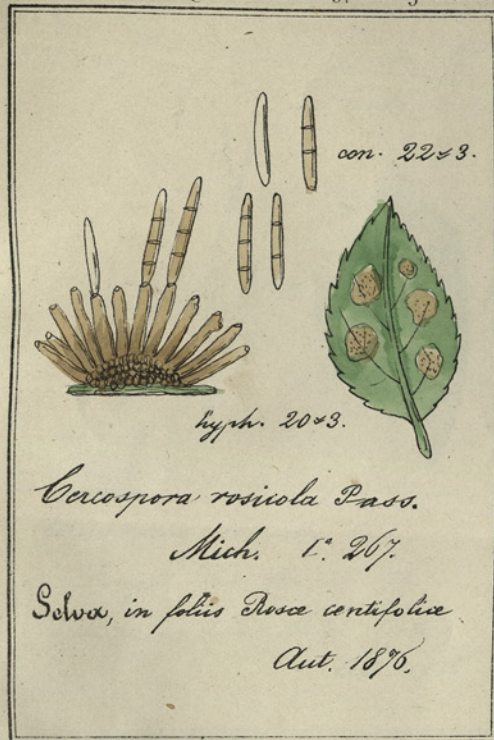 con. 22≈3.
hyph. 20≈3.
Cercospora rosicola Pass.
Mich. 1.ª 267.
Selva, in foliis Rosæ centifoliæ
Aut. 1876.